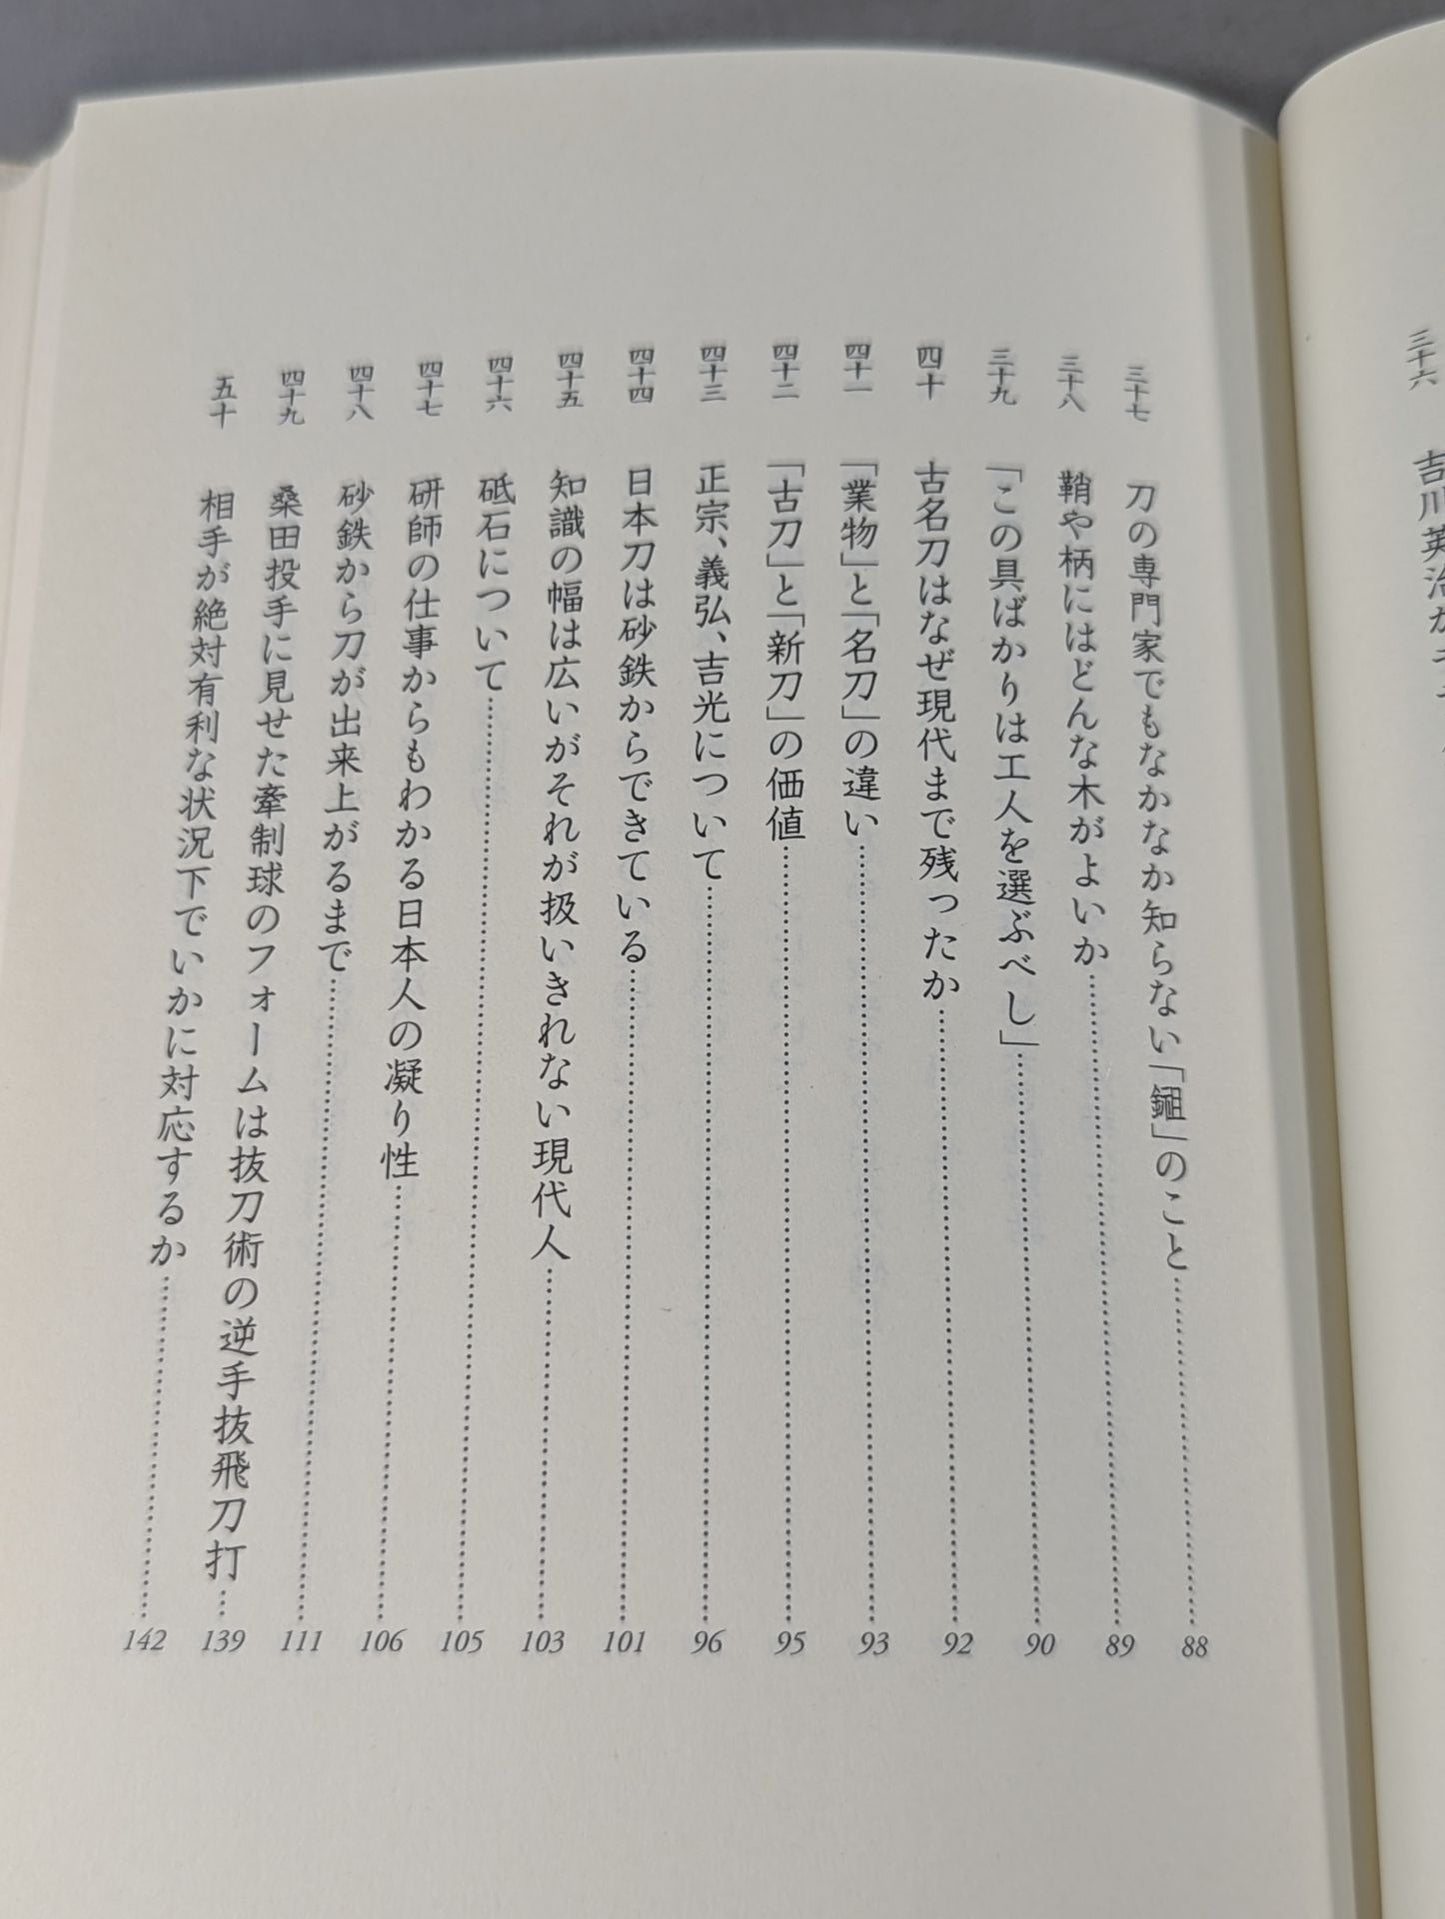 三十六 吉川英治が
三十七 刀の専門家でもなかなか知らない「鎺」のこと……88
三十八 鞘や柄にはどんな木がよいか……89
三十九 「この具ばかりは工人を選ぶべし」……90
四十 古名刀はなぜ現代まで残ったか……92
四十一 「業物」と「名刀」の違い……93
四十二 「古刀」と「新刀」の価値……95
四十三 正宗、義弘、吉光について……96
四十四 日本刀は砂鉄からできている……101
四十五 知識の幅は広いがそれが扱いきれない現代人……103
四十六 砥石について……105
四十七 研師の仕事からもわかる日本人の凝り性……106
四十八 砂鉄から刀が出来上がるまで……111
四十九 桑田投手に見せた牽制球のフォームは抜刀術の逆手抜飛刀打…139
五十 相手が絶対有利な状況下でいかに対応するか……142